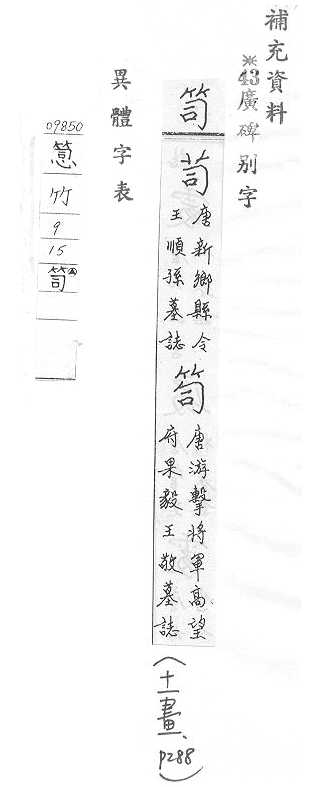 補充資料
※43廣碑别字
笥
唐新鄉縣令
王順孫墓誌
笥
唐游擊將軍高望
府果毅王敬墓誌
(十一畫、P288)
異體字表
09850
竹
9
15
笥